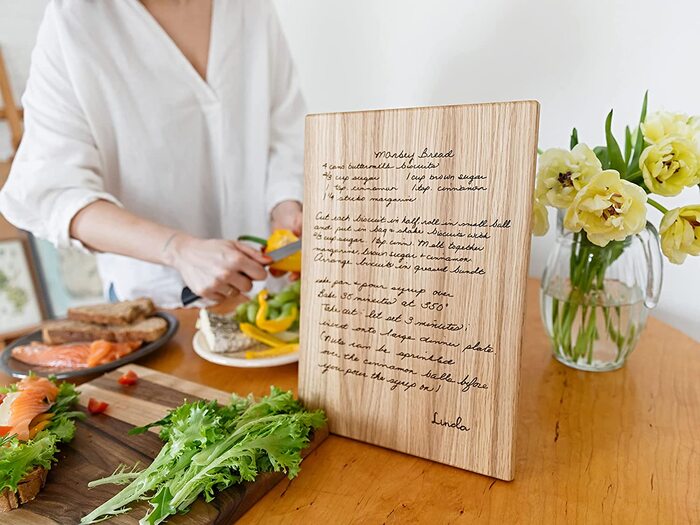 Monkey Bread
4 cans buttermilk biscuits
2/3 cup sugar 1 cup brown sugar
1 tsp. cinnamon 1 tsp. cinnamon
1 1/4 sticks margarine
Cut each biscuit in half, roll in small ball
and put in bag & shake biscuits with
2/3 cup sugar 1 tsp cinn. Melt together
margarine, brown sugar & cinnamon
Arrange biscuits in greased bundt
cake pan & pour syrup over
Bake 35 minutes at 350°
Take out - let set 3 minutes;
invert onto large dinner plate.
(Nuts can be sprinkled
over the cinnamon balls before
you pour the syrup on!
Linda